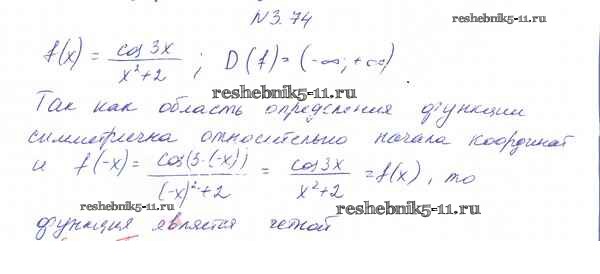 N3.74
reshebnik5-11.ru
f(x) = cos 3x / x²+2 ; D(f) = (-∞; +∞)
reshebnik5-11.ru
Так как область определения функции
симметрична относительно начала координат
и f(-x) = cos(3·(-x)) / (-x)²+2 = cos 3x / x²+2 = f(x), то
reshebnik5-11.ru
reshebnik5-11.ru
функция является четной